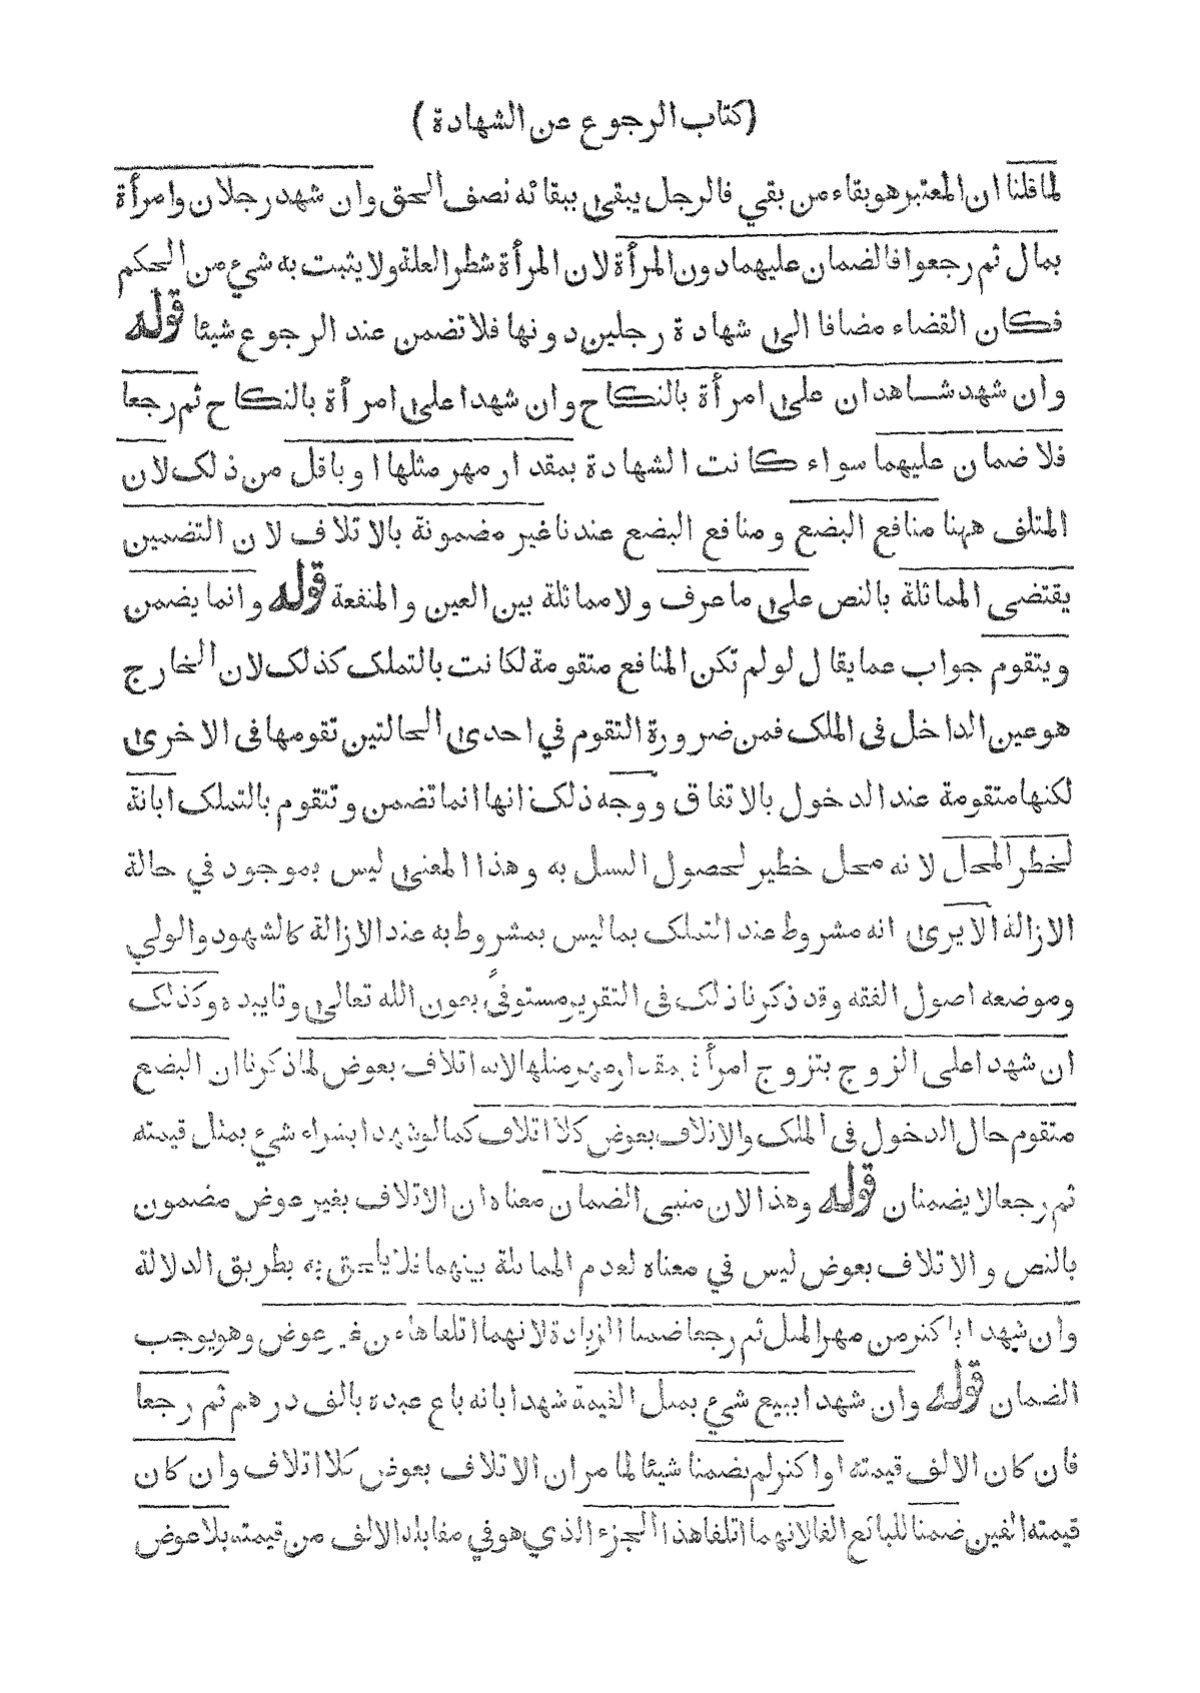 (كتاب الرجوع عن الشهادة)
لما قلنا ان المعتبر هو بقاء من بقي فالرجل يبقى ببقائه نصف الحق وان شهد رجلان وامرأة
بمال ثم رجعوا فالضمان عليهما دون المرأة لان المرأة شطر العلة ولا يثبت به شيء من الحكم
فكان القضاء مضافا الى شهادة رجلين دونها فلا تضمن عند الرجوع شيئا قوله
وان شهد شاهدان على امرأة بالنكاح وان شهدا على امرأة بالنكاح ثم رجعا
فلا ضمان عليهما سواء كانت الشهادة بمقدار مهر مثلها او باقل من ذلك لان
المتلف ههنا منافع البضع ومنافع البضع عندنا غير مضمونة بالاتلاف لان التضمين
يقتضى المماثلة بالنص على ما عرف ولا مماثلة بين العين والمنفعة قوله وانما يضمن
ويتقوم جواب عما يقال لو لم تكن المنافع متقومة لكانت بالتملك كذلك لان الخارج
هو عين الداخل فى الملك فمن ضرورة التقوم في احدى الحالتين تقومها فى الاخرى
لكنها متقومة عند الدخول بالاتفاق ووجه ذلك انها انما تضمن وتتقوم بالتملك ابانة
لخطر المحل لانه محل خطير لحصول النسل به وهذا المعنى ليس بموجود في حالة
الازالة الا يرى انه مشروط عند التملك بما ليس بمشروط به عند الازالة كالشهود والولي
وموضعه اصول الفقه وقد ذكرنا ذلك فى التقرير مستوفىً بعون الله تعالى وتاييده وكذلك
ان شهدا على الزوج بتزوج امرأة بمقدار مهر مثلها لانه اتلاف بعوض لما ذكرنا ان البضع
متقوم حال الدخول فى الملك والاتلاف بعوض كلا اتلاف كما لو شهدا بشراء شيء بمثل قيمته
ثم رجعا لا يضمنان قوله وهذا لان مبنى الضمان معناه ان الاتلاف بغير عوض مضمون
بالنص والاتلاف بعوض ليس في معناه لعدم المماثلة بينهما فلا يلحق به بطريق الدلالة
وان شهدا باكثر من مهر المثل ثم رجعا ضمنا الزيادة لانهما اتلفاها من غير عوض وهو يوجب
الضمان قوله وان شهدا ببيع شيء بمثل القيمة شهدا بانه باع عبده بالف درهم ثم رجعا
فان كان الالف قيمته او اكثر لم يضمنا شيئا لما مر ان الاتلاف بعوض كلا اتلاف وان كان
قيمته الفين ضمنا للبائع الفا لانهما اتلفا هذا الجزء الذي هو في مقابلة الالف من قيمته بلا عوض